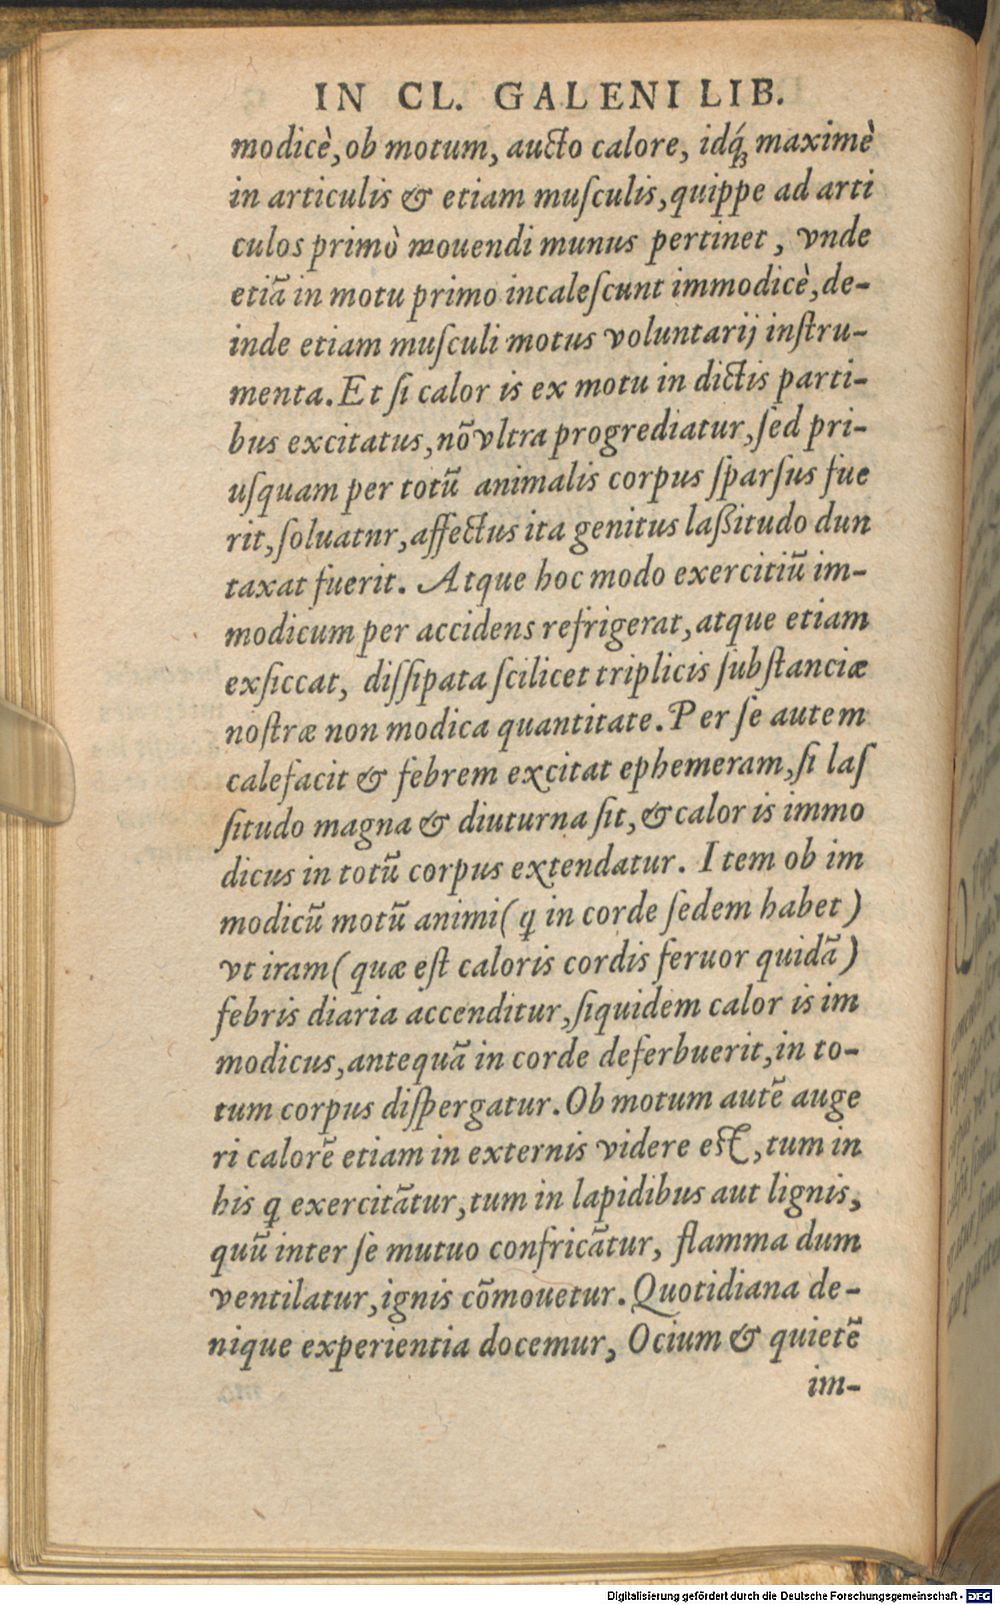 IN CL. GALENI LIB.
modicè, ob motum, aucto calore, idq́ꝫ maximè
in articulis & etiam muſculis, quippe ad arti
culos primò mouendi munus pertinet, vnde
etiã in motu primo incaleſcunt immodicè, de-
inde etiam muſculi motus voluntarij inſtru-
menta. Et ſi calor is ex motu in dictis parti-
bus excitatus, nõ vltra progrediatur, ſed pri-
uſquam per totũ animalis corpus ſparſus fue
rit, ſoluatnr, affectus ita genitus laßitudo dun
taxat fuerit. Atque hoc modo exercitiũ im-
modicum per accidens refrigerat, atque etiam
exſiccat, diſſipata ſcilicet triplicis ſubſtanciæ
noſtræ non modica quantitate. Per ſe autem
calefacit & febrem excitat ephemeram, ſi laſ
ſitudo magna & diuturna ſit, & calor is immo
dicus in totũ corpus extendatur. Item ob im
modicũ motũ animi (q in corde ſedem habet)
vt iram (quæ eſt caloris cordis feruor quidã)
febris diaria accenditur, ſiquidem calor is im
modicus, antequã in corde deferbuerit, in to-
tum corpus diſpergatur. Ob motum autẽ auge
ri calorẽ etiam in externis videre eſt, tum in
his q exercitãtur, tum in lapidibus aut lignis,
quũ inter ſe mutuo confricãtur, flamma dum
ventilatur, ignis cõmouetur. Quotidiana de-
nique experientia docemur, Ocium & quietẽ
im-
Digitalisierung gefördert durch die Deutsche Forschungsgemeinschaft - DFG